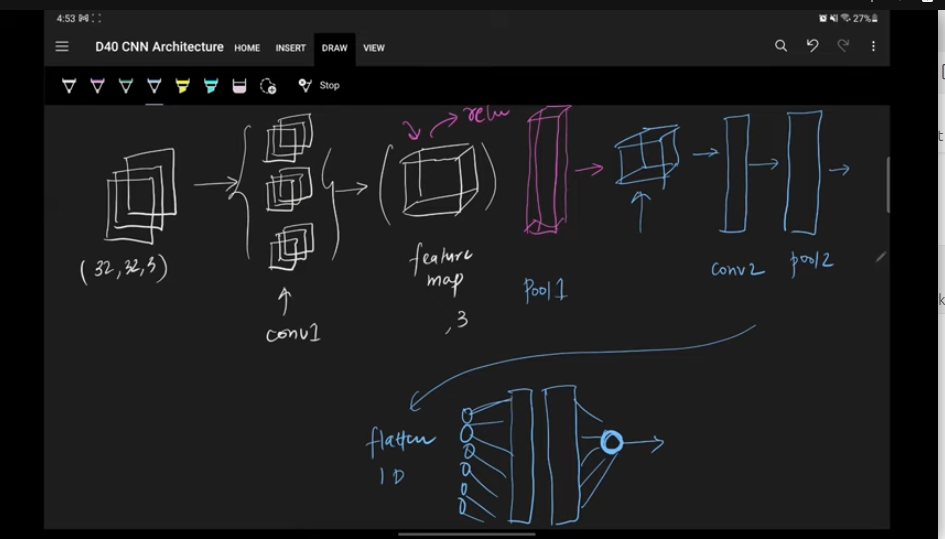 4:53
27%
D40 CNN Architecture HOME INSERT DRAW VIEW
Stop
relu
(32,32,3)
conv1
feature
map
,3
Pool1
conv2
pool2
flatten
1D
t
k